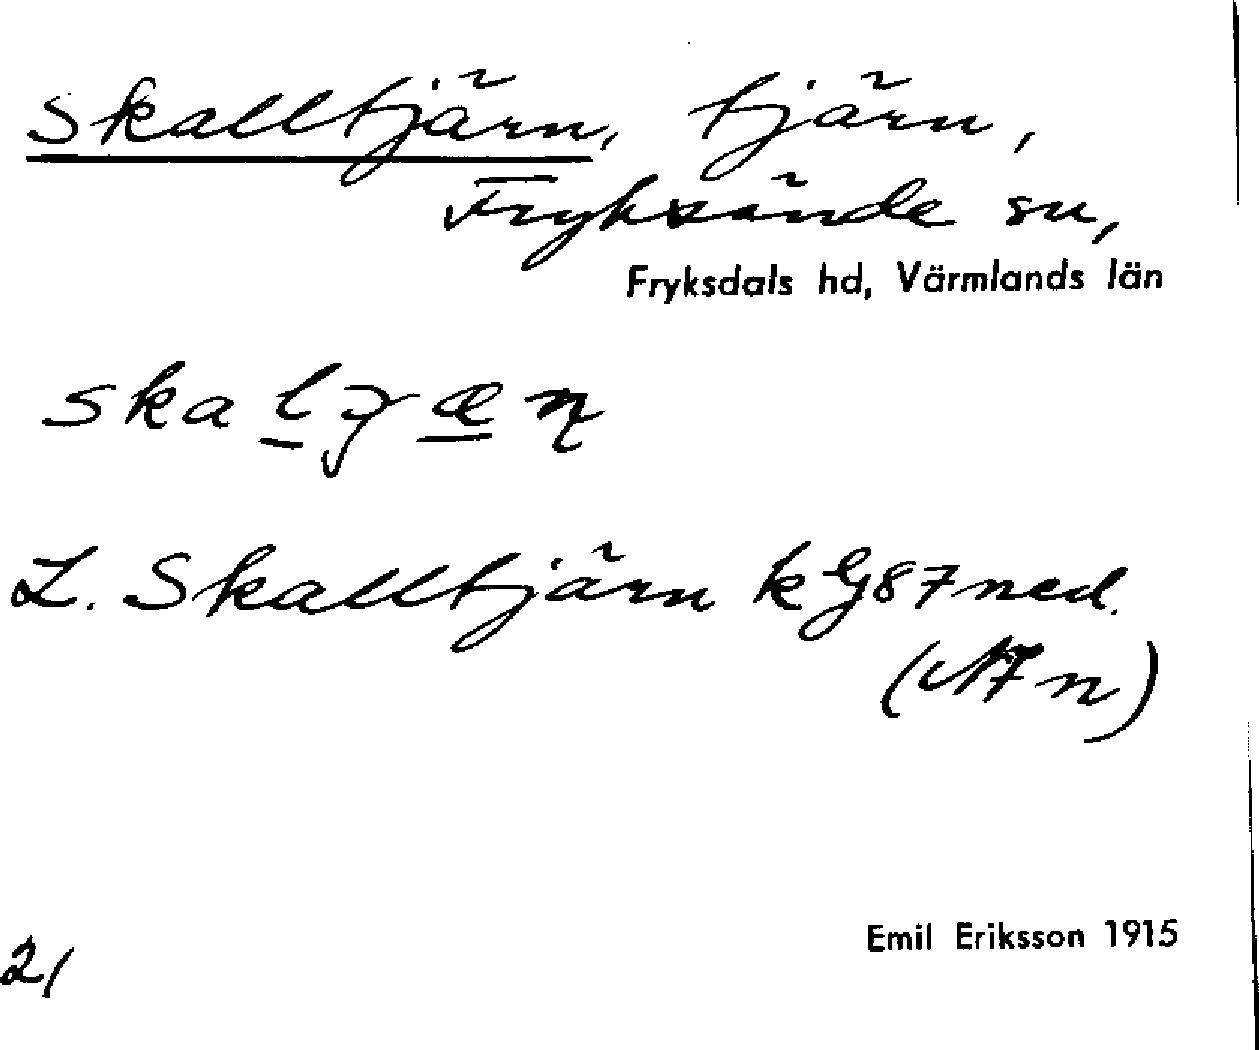 Skalltjärn, tjärn,
Fryksände sn,
Fryksdals hd, Värmlands län
L. Skalltjärn k
ned.
Emil Eriksson 1915
21